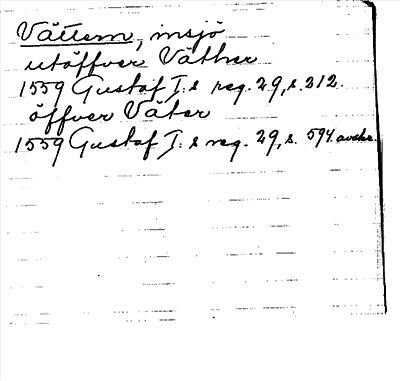 Vättern, insjö
utöffver Väther
1559 Gustaf I:s reg. 29, s. 212.
öffver Väter
1559 Gustaf I:s reg. 29, s. 594 avskr.